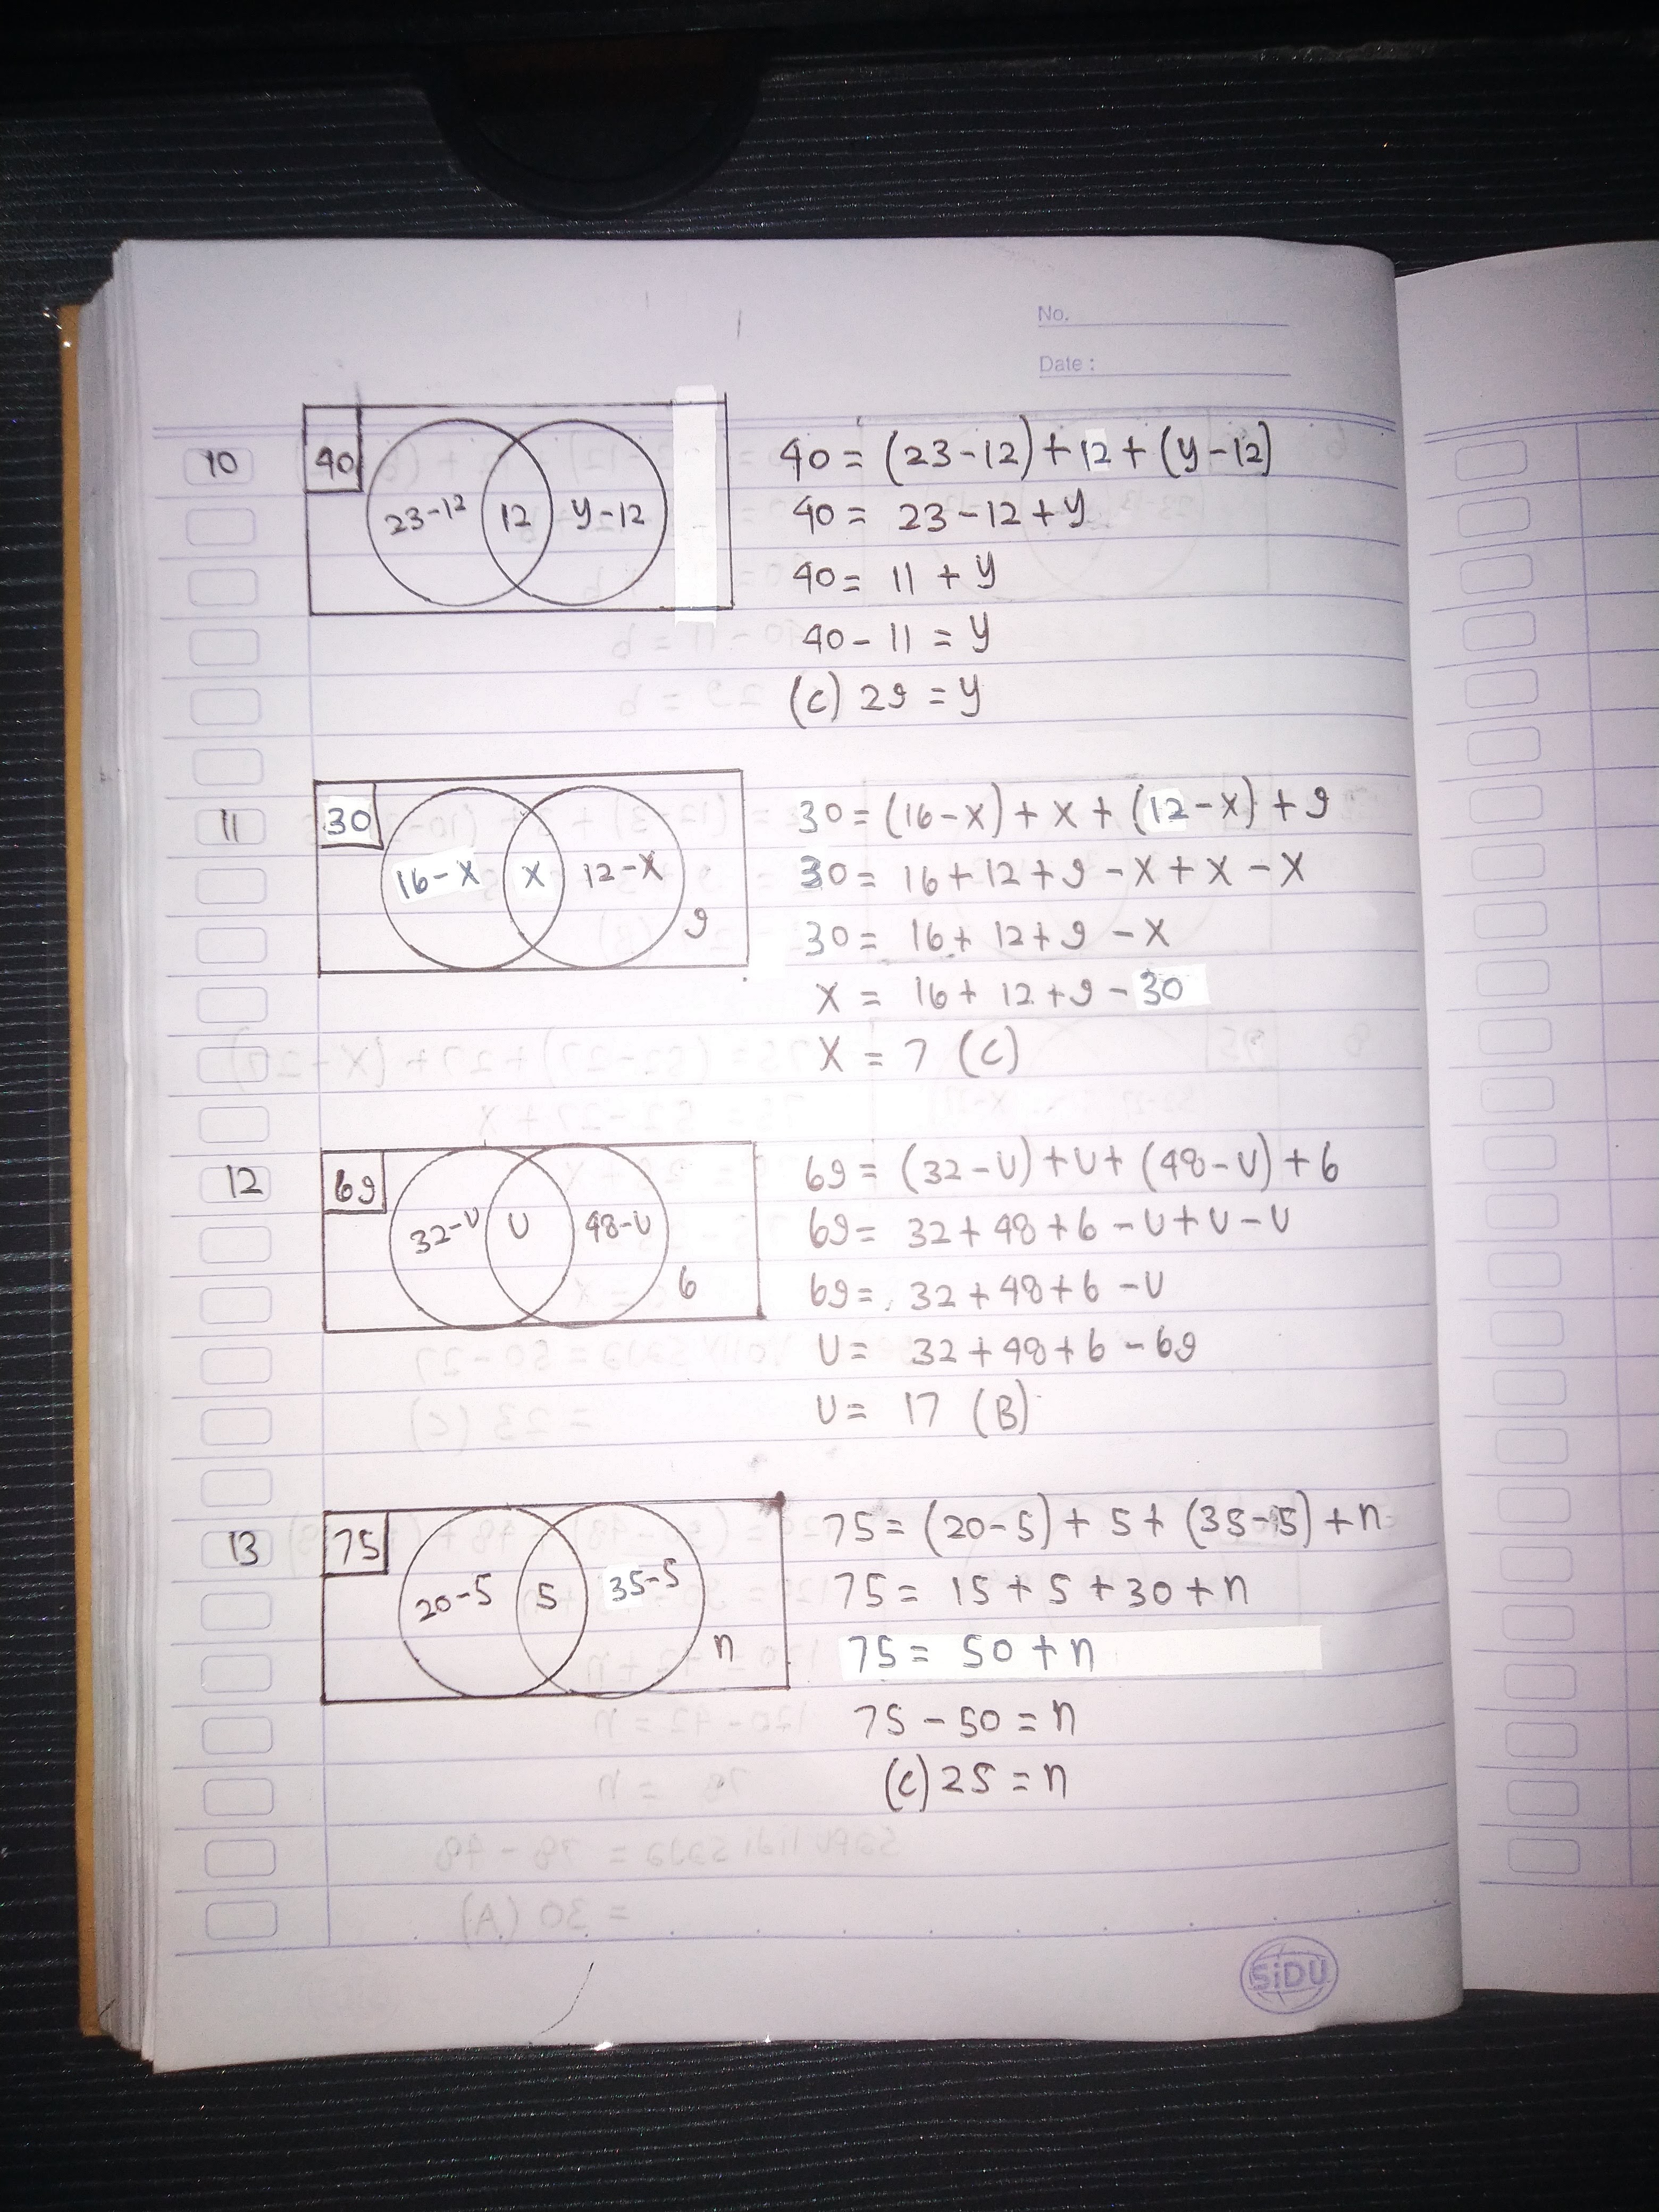 No.
Date :
10
40
23-12
12
y-12
40 = (23-12) + 12 + (y-12)
40 = 23-12+y
40 = 11 + y
40 - 11 = y
(c) 29 = y
11
30
16-x
x
12-x
9
30 = (16-x) + x + (12-x) + 9
30 = 16+12+9-x+x-x
30 = 16+12+9-x
x = 16+12+9-30
x = 7 (c)
12
69
32-u
u
48-u
6
69 = (32-u)+u+(48-u)+6
69 = 32+48+6-u+u-u
69 = 32+48+6-u
u = 32+48+6-69
u = 17 (B)
13
75
20-5
5
35-5
n
75 = (20-5) + 5 + (35-5) + n
75 = 15 + 5 + 30 + n
75 = 50 + n
75 - 50 = n
(c) 25 = n
SiDU